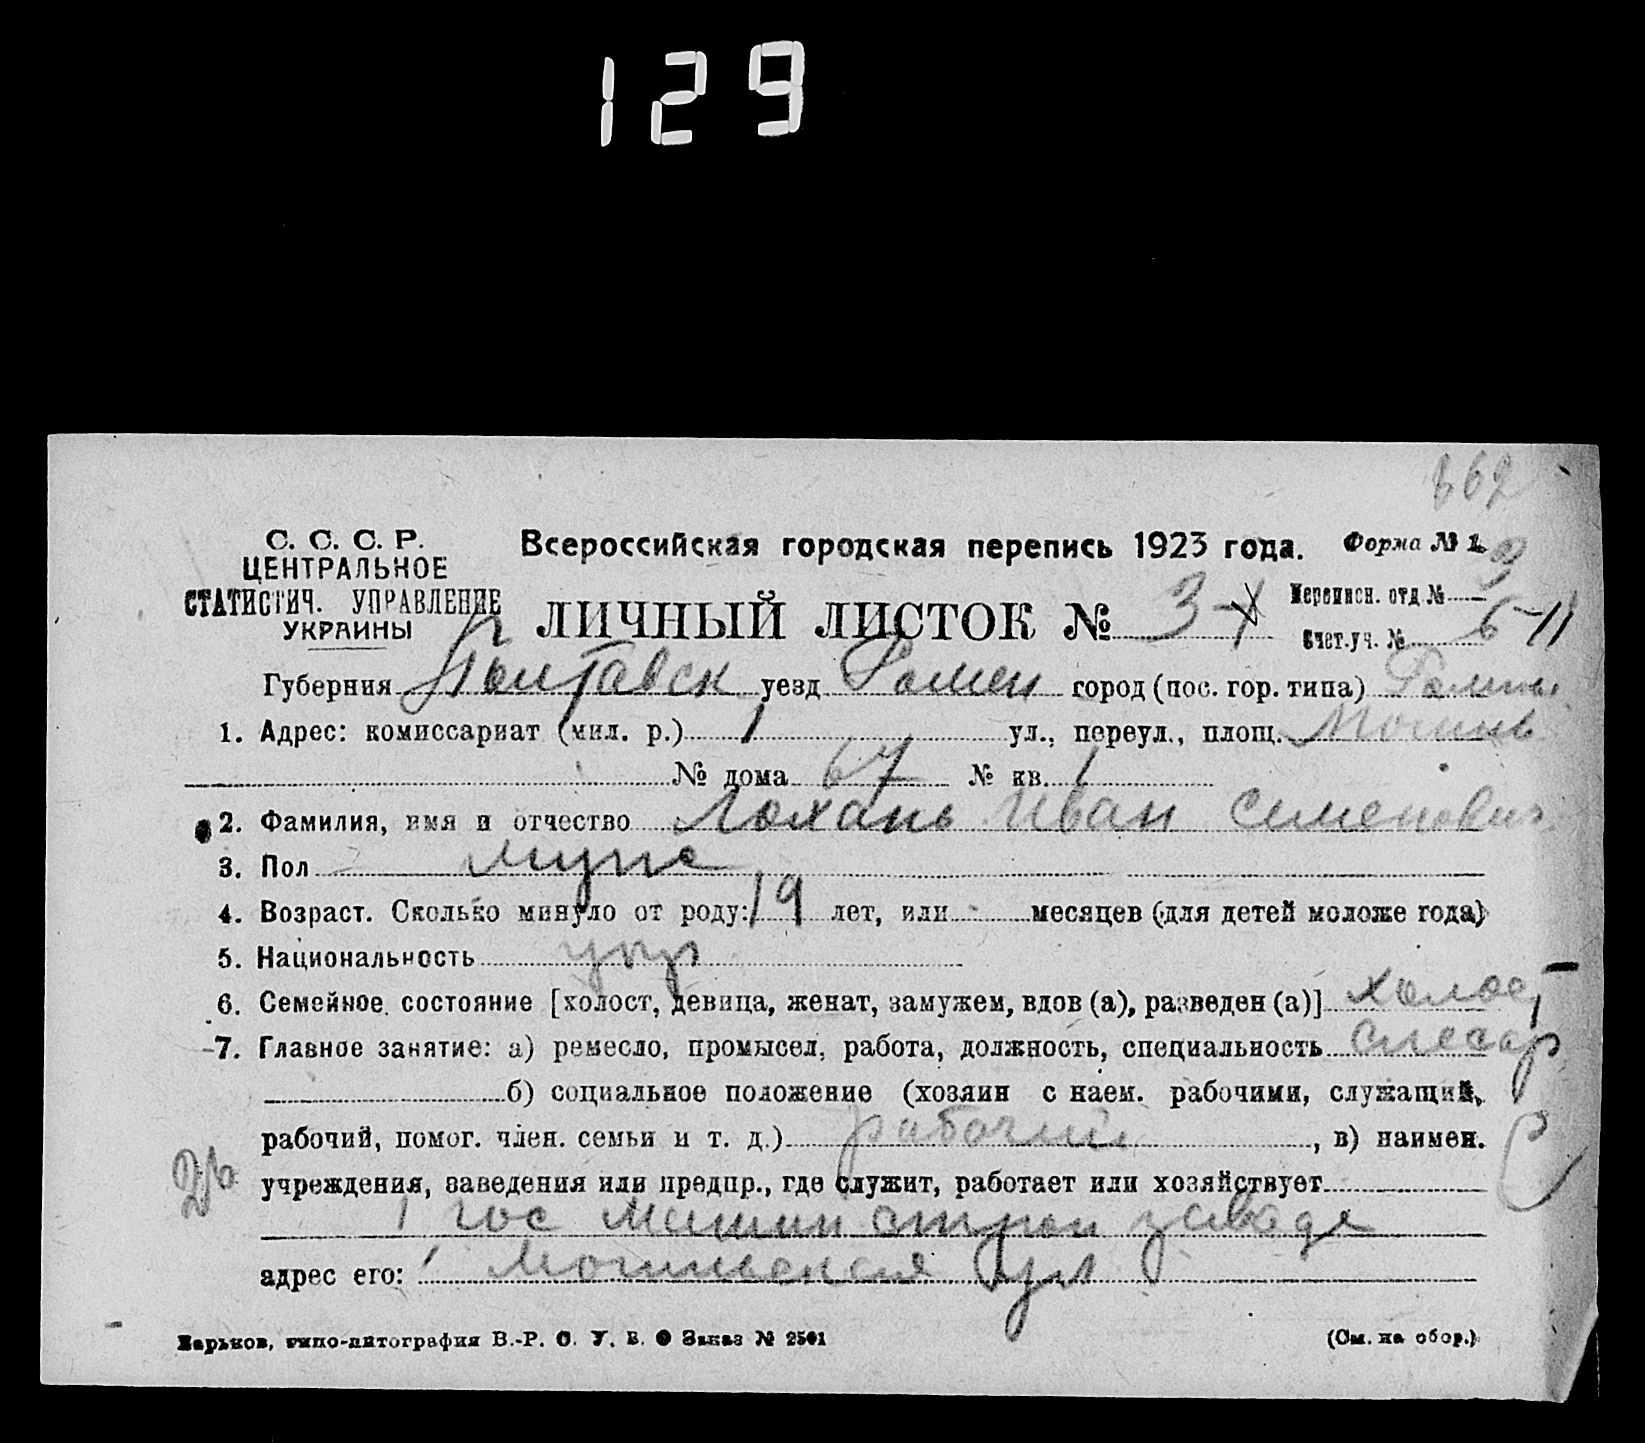 129
862
С. С. С. Р.
ЦЕНТРАЛЬНОЕ
СТАТИСТИЧ. УПРАВЛЕНИЕ
УКРАИНЫ
Всероссийская городская перепись 1923 года.
Форма № 1
ЛИЧНЫЙ ЛИСТОК № 3
Переписн. отд. №
Счет. уч. № 6-11
Губерния Полтавск уезд Ромен город (пос. гор. типа) Ромны
1. Адрес: комиссариат (мил. р.) 1 ул., переул., площ.
№ дома 67 № кв. 1
2. Фамилия, имя и отчество Лохань Иван Семенович
3. Пол муж
4. Возраст. Сколько минуло от роду: 19 лет, или - месяцев (для детей моложе года)
5. Национальность укр
6. Семейное состояние [холост, девица, женат, замужем, вдов (а), разведен (а)] холост
7. Главное занятие: а) ремесло, промысел, работа, должность, специальность слесар
б) социальное положение (хозяин с наем. рабочими, служащий,
рабочий, помог. член. семьи и т. д.) рабочий, в) наимен.
учреждения, заведения или предпр., где служит, работает или хозяйствует
1 гос машин строи заводе
адрес его: ул
Харьков, типо-литография В.-Р. С. У. В. Заказ № 2501
(См. на обор.)